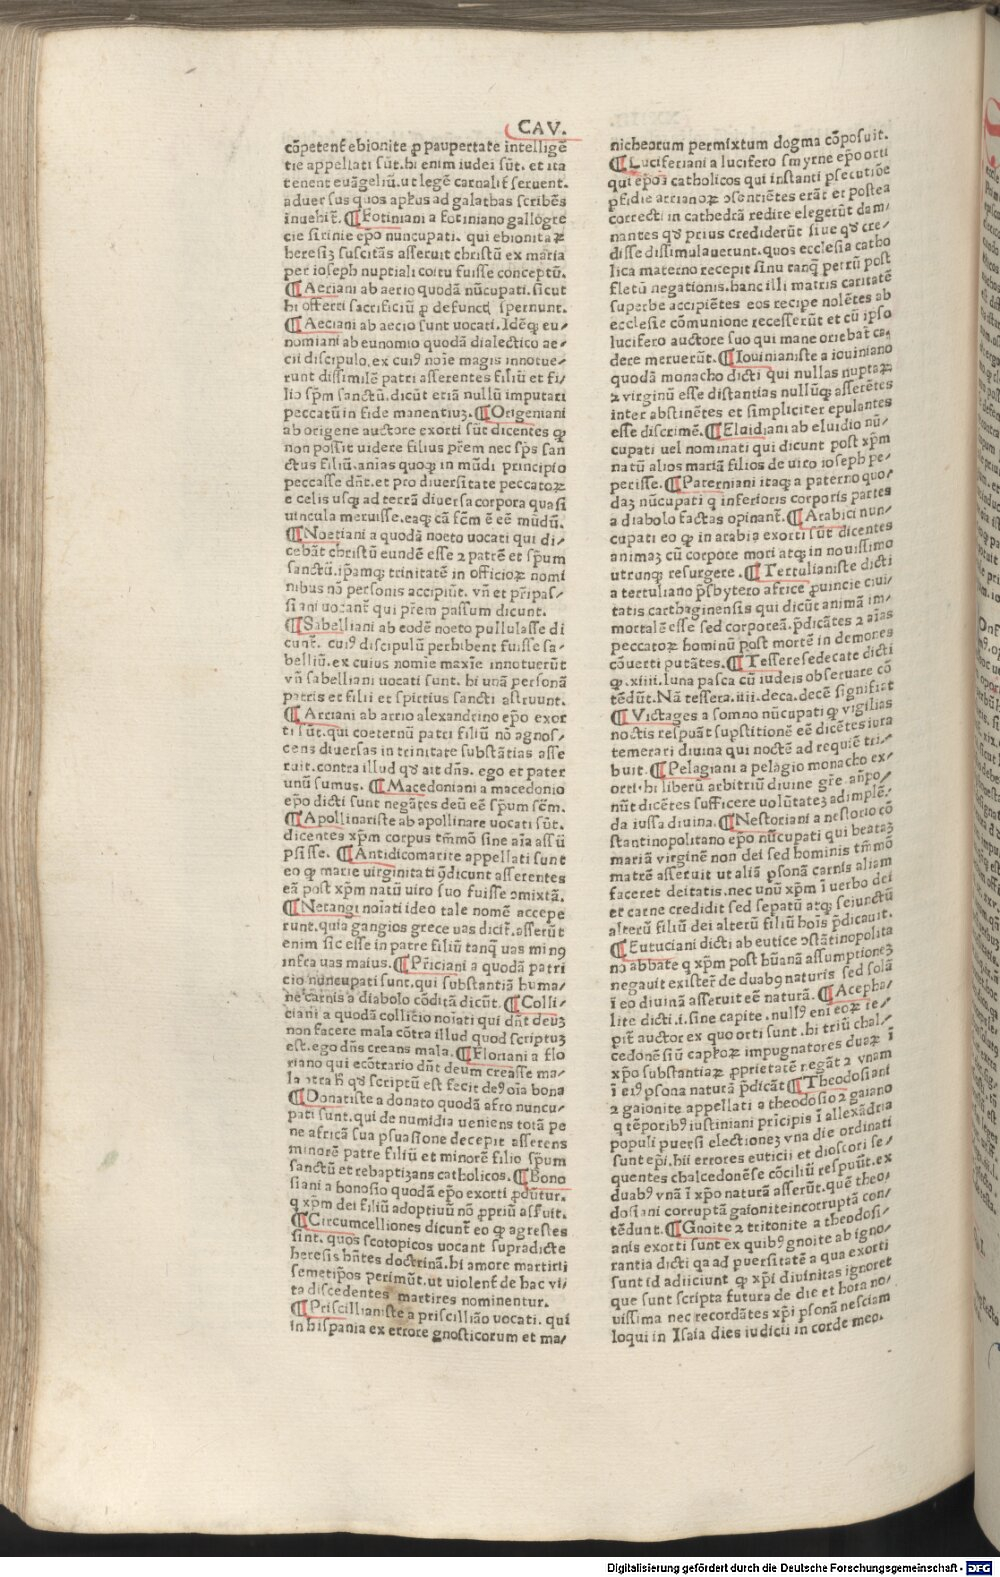 CAV.
cōpetenť ebionite ꝓ paupertate intelligē
tie appellati sūt. hi enim iudei sūt. et ita
tenent euāgeliū. ut legē carnaliť seruent.
aduersus quos aplꝰs ad galathas scribēs
inuehiť. ¶ Fotiniani a fotiniano gallogre
cie sirinie epo nuncupati. qui ebionitaꝝ
heresiꝫ suscitās asseruit christū ex maria
per ioseph nuptiali coitu fuisse conceptū.
¶ Aeriani ab aerio quodā nūcupati. sicut
hi offerri sacrificiū ꝓ defunctꝭ spernunt.
¶ Aeciani ab aecio sunt uocati. Idēqꝫ eu⸗
nomiani ab eunomio quodā dialectico ae⸗
cii discipulo. ex cuiꝰ noīe magis innotue⸗
runt dissimilē patri asserentes filiū et fi⸗
lio spm sanctū. dicūt etiā nullū imputari
peccatū in fide manentiuꝫ. ¶ Origeniani
ab origene auctore exorti sūt dicentes ꝙ
non possit uidere filius přem nec sps san
ctus filiū. anias quoqꝫ in mūdi principio
peccasse dn̄t. et pro diuersitate peccatoꝝ
e celis usqꝫ ad terrā diuersa corpora quasi
uincula meruisse. eaqꝫ cā fēm ē eē mūdū.
¶ Noetiani a quodā noeto uocati qui di⸗
cebāt christū eundē esse ⁊ patrē et spm
sanctū. ipamqꝫ trinitatē in officioꝝ nomi
nibus nō personis accipiūt. vn̄ et připas⸗
siani uocanť qui přem passum dicunt.
¶ Sabelliani ab eodē noeto pullulasse di
cunť. cuiꝰ discipulū perhibent fuisse sa⸗
belliū. ex cuius nomīe maxīe innotuerūt
vn̄ sabelliani uocati sunt. hi unā personā
patris et filii et spirtius sancti astruunt.
¶ Arriani ab arrio alexandrino epo exor
ti sūt. qui coeternū patri filiū nō agnos⸗
cens diuersas in trinitate substātias asse
ruit. contra illud qď ait dn̄s. ego et pater
unū sumus. ¶ Macedoniani a macedonio
epo dicti sunt negātes deū eē spm sēm.
¶ Apollinariste ab apollinare uocati sūt.
dicentes xpm corpus tm̄mō sine aīa assū
psisse. ¶ Antidicomarite appellati sunt
eo ꝙ marie uirginitati ꝯdicunt asserentes
eā post xpm natū uiro suo fuisse ↄmixtā.
¶ Netangi noīati ideo tale nomē accepe
runt. quia gangios grece uas diciť. asserūt
enim sic esse in patre filiū tanqꝫ uas minꝰ
infra uas maius. ¶ Přiciani a quodā patri
cio nuncupati sunt. qui substantiā huma⸗
ne carnis a diabolo cōditā dicūt. ¶ Colli⸗
ciani a quodā collicio noīati qui dn̄t deuꝫ
non facere mala cōtra illud quod scriptuꝫ
est. ego dn̄s creans mala. ¶ Floriani a flo
riano qui ecōtrario dn̄t deum creasse ma⸗
la ↄtra h̄ qď scriptū est fecit deꝰ oīa bona
¶ Donatiste a donato quodā afro nuncu⸗
pati sunt. qui de numidia ueniens totā pe
ne africā sua psuasione decepit asserens
minorē patre filiū et minorē filio spm
sanctū et rebaptizans catholicos. ¶ Bono
siani a bonosio quodā epo exorti ꝓduntur.
q xpm dei filiū adoptiuū nō ꝓpriū asserūt.
¶ Circumcelliones dicunť eo ꝙ agrestes
sint. quos scotopicos uocant supradicte
heresis hn̄tes doctrinā. hi amore martirii
semetipos perimūt. ut uiolenť de hac vi⸗
ta discedentes martires nominentur.
¶ Priscillianiste a priscillião uocati. qui
in hispania ex errore gnosticorum et ma⸗
nicheorum permixtum dogma cōposuit.
¶ Luciferiani a lucifero smyrne epo orti
qui epos catholicos qui instanti psecutiōe
pfidie arrianoꝝ ↄsentiētes erāt et postea
correcti in cathedrā redire elegerūt dam⸗
nantes qď prius crediderūt siue qď cre⸗
disse dissimulauerunt. quos ecclesia catho
lica materno recepit sinu tanqꝫ petrū post
fletū negationis. hanc illi matris caritatē
superbe accipiētes eos recipe nolētes ab
ecclesie cōmunione recesserūt et cū ipso
lucifero auctore suo qui mane oriebať ca⸗
dere meruerūt. ¶ Iouinianiste a iouiniano
quodā monacho dicti qui nullas nuptaꝝ
⁊ virginū esse distantias nullūqꝫ asserētes
inter abstinētes et simpliciter epulantes
esse discrimē. ¶ Eluidiani ab eluidio nū⸗
cupati uel nominati qui dicunt post xpm
natū alios mariā filios de uiro ioseph pe⸗
perisse. ¶ Paterniani itaqꝫ a paterno quo⸗
daꝫ nūcupati q inferioris corporis partes
a diabolo factas opinanť. ¶ Arabici nun⸗
cupati eo ꝙ in arabia exorti sūt dicentes
animaꝫ cū corpore mori atqꝫ in nouissimo
utrunqꝫ resurgere. ¶ Tertulianiste dicti
a tertuliano psbytero africe ꝓuincie ciui⸗
tatis carthaginensis qui dicūt animā im⸗
mortalē esse sed corporeā. pdicātes ⁊ aīas
peccatoꝝ hominū post mortē in demones
cōuerti putātes. ¶ Tesseresedecate dicti
ꝙ. xiiii. luna pasca cū iudeis obseruare cō
tēdūt. Nā tessera. iiii. deca. decē significat
¶ Victages a somno nūcupati ꝙ vigilias
noctis respuāt supstitionē eē dicētes iura
temerari diuina qui noctē ad requiē tri⸗
buit. ¶ Pelagiani a pelagio monacho ex⸗
orti. hi liberū arbitriū diuine gře an̄po⸗
nūt dicētes sufficere uolūtateꝫ adimplē⸗
da iussa diuina. ¶ Nestoriani a nestorio cō
stantinopolitano epo nūcupati qui beataꝫ
mariā virginē non dei sed hominis tm̄mō
matrē asseruit ut aliā psonā carnis aliam
faceret deitatis. nec unū xpm ī uerbo dei
et carne credidit sed sepatū atqꝫ seiunctū
alterū filiū dei alterū filiū hoīs pdicauit.
¶ Eutuciani dicti ab eutice ↄstātinopolita
no abbate q xpm post hūanā assumptioneꝫ
negauit existeř de duabꝰ naturis sed solā
ī eo diuinā asseruit eē naturā. ¶ Acepha⸗
lite dicti. i. sine capite. nullꝰ eni eoꝝ re⸗
piť auctor ex quo orti sunt. hi triū chal⸗
cedonē siū capľoꝝ impugnatores duaꝝ ī
xpo substantiaꝝ ꝓprietatē negāt ⁊ vnam
ī eiꝰ psona naturā pdicāt ¶ Theodosiani
⁊ gaionite appellati a theodosio ⁊ gaiano
q tēporibꝰ iustiniani principis ī allexādria
populi puersi electioneꝫ vna die ordinati
sunt epi. hii errores euticii et dioscori se⸗
quentes chalcedonēse cōciliū respuūt. ex
duabꝰ vnā ī xpo naturā asserūt. quē theo⸗
dosiani corruptā gaionite incorruptā con⸗
tēdunt. ¶ Gnoite ⁊ tritonite a theodosi⸗
anis exorti sunt ex quibꝰ gnoite ab igno⸗
rantia dicti qa ad puersitatē a qua exorti
sunt id adiiciunt ꝙ xpi diuinitas ignoret
que sunt scripta futura de die et hora no⸗
uissima nec recordātes xpi psonā nesciam
loqui in Isaia dies iudicii in corde meo.
Digitalisierung gefördert durch die Deutsche Forschungsgemeinschaft - DFG